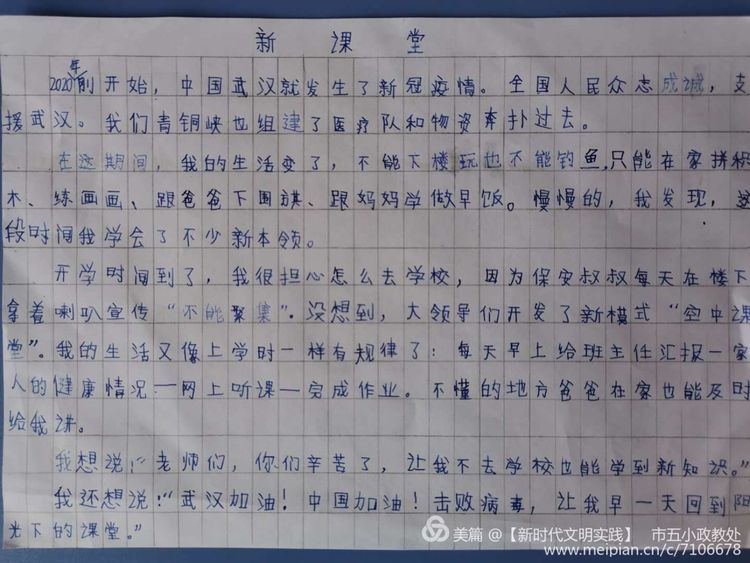 新课堂
2020年前开始，中国武汉就发生了新冠疫情。全国人民众志成城，支
援武汉。我们青铜峡也组建了医疗队和物资奔扑过去。
在这期间，我的生活变了，不能下楼玩也不能钓鱼,只能在家拼积
木、练画画、跟爸爸下围棋、跟妈妈学做早饭。慢慢的，我发现，这
段时间我学会了不少新本领。
开学时间到了，我很担心怎么去学校，因为保安叔叔每天在楼下
拿着喇叭宣传“不能聚集”.没想到，大领导们开发了新模式“空中课
堂”。我的生活又像上学时一样有规律了：每天早上给班主任汇报一家
人的健康情况—网上听课—完成作业。不懂的地方爸爸在家也能及时
给我讲。
我想说:“老师们，你们辛苦了，让我不去学校也能学到新知识。”
我还想说:“武汉加油！中国加油！击败病毒，让我早一天回到阳
光下的课堂。”
美篇 @【新时代文明实践】 市五小政教处
www.meipian.cn/c/7106678